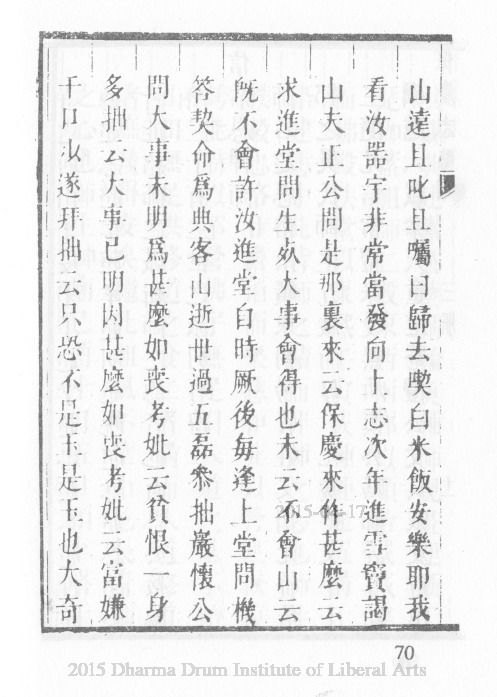 山遶且叱且囑曰歸去喫白米飯安樂耶我
看汝器宇非常當發向上志次年進雪竇謁
山夫正公問是那裏來云保慶來作甚麼云
求進堂問生死大事會得也未云不會山云
既不會許汝進堂自時厥後每逢上堂問機
答契命爲典客山逝世過五磊參拙巖懷公
問大事未明爲甚麼如喪考妣云貧恨一身
多拙云大事已明因甚麼如喪考妣云富嫌
千口少遂拜拙云只恐不是玉是玉也大奇
2015-04-17
70
2015 Dharma Drum Institute of Liberal Arts